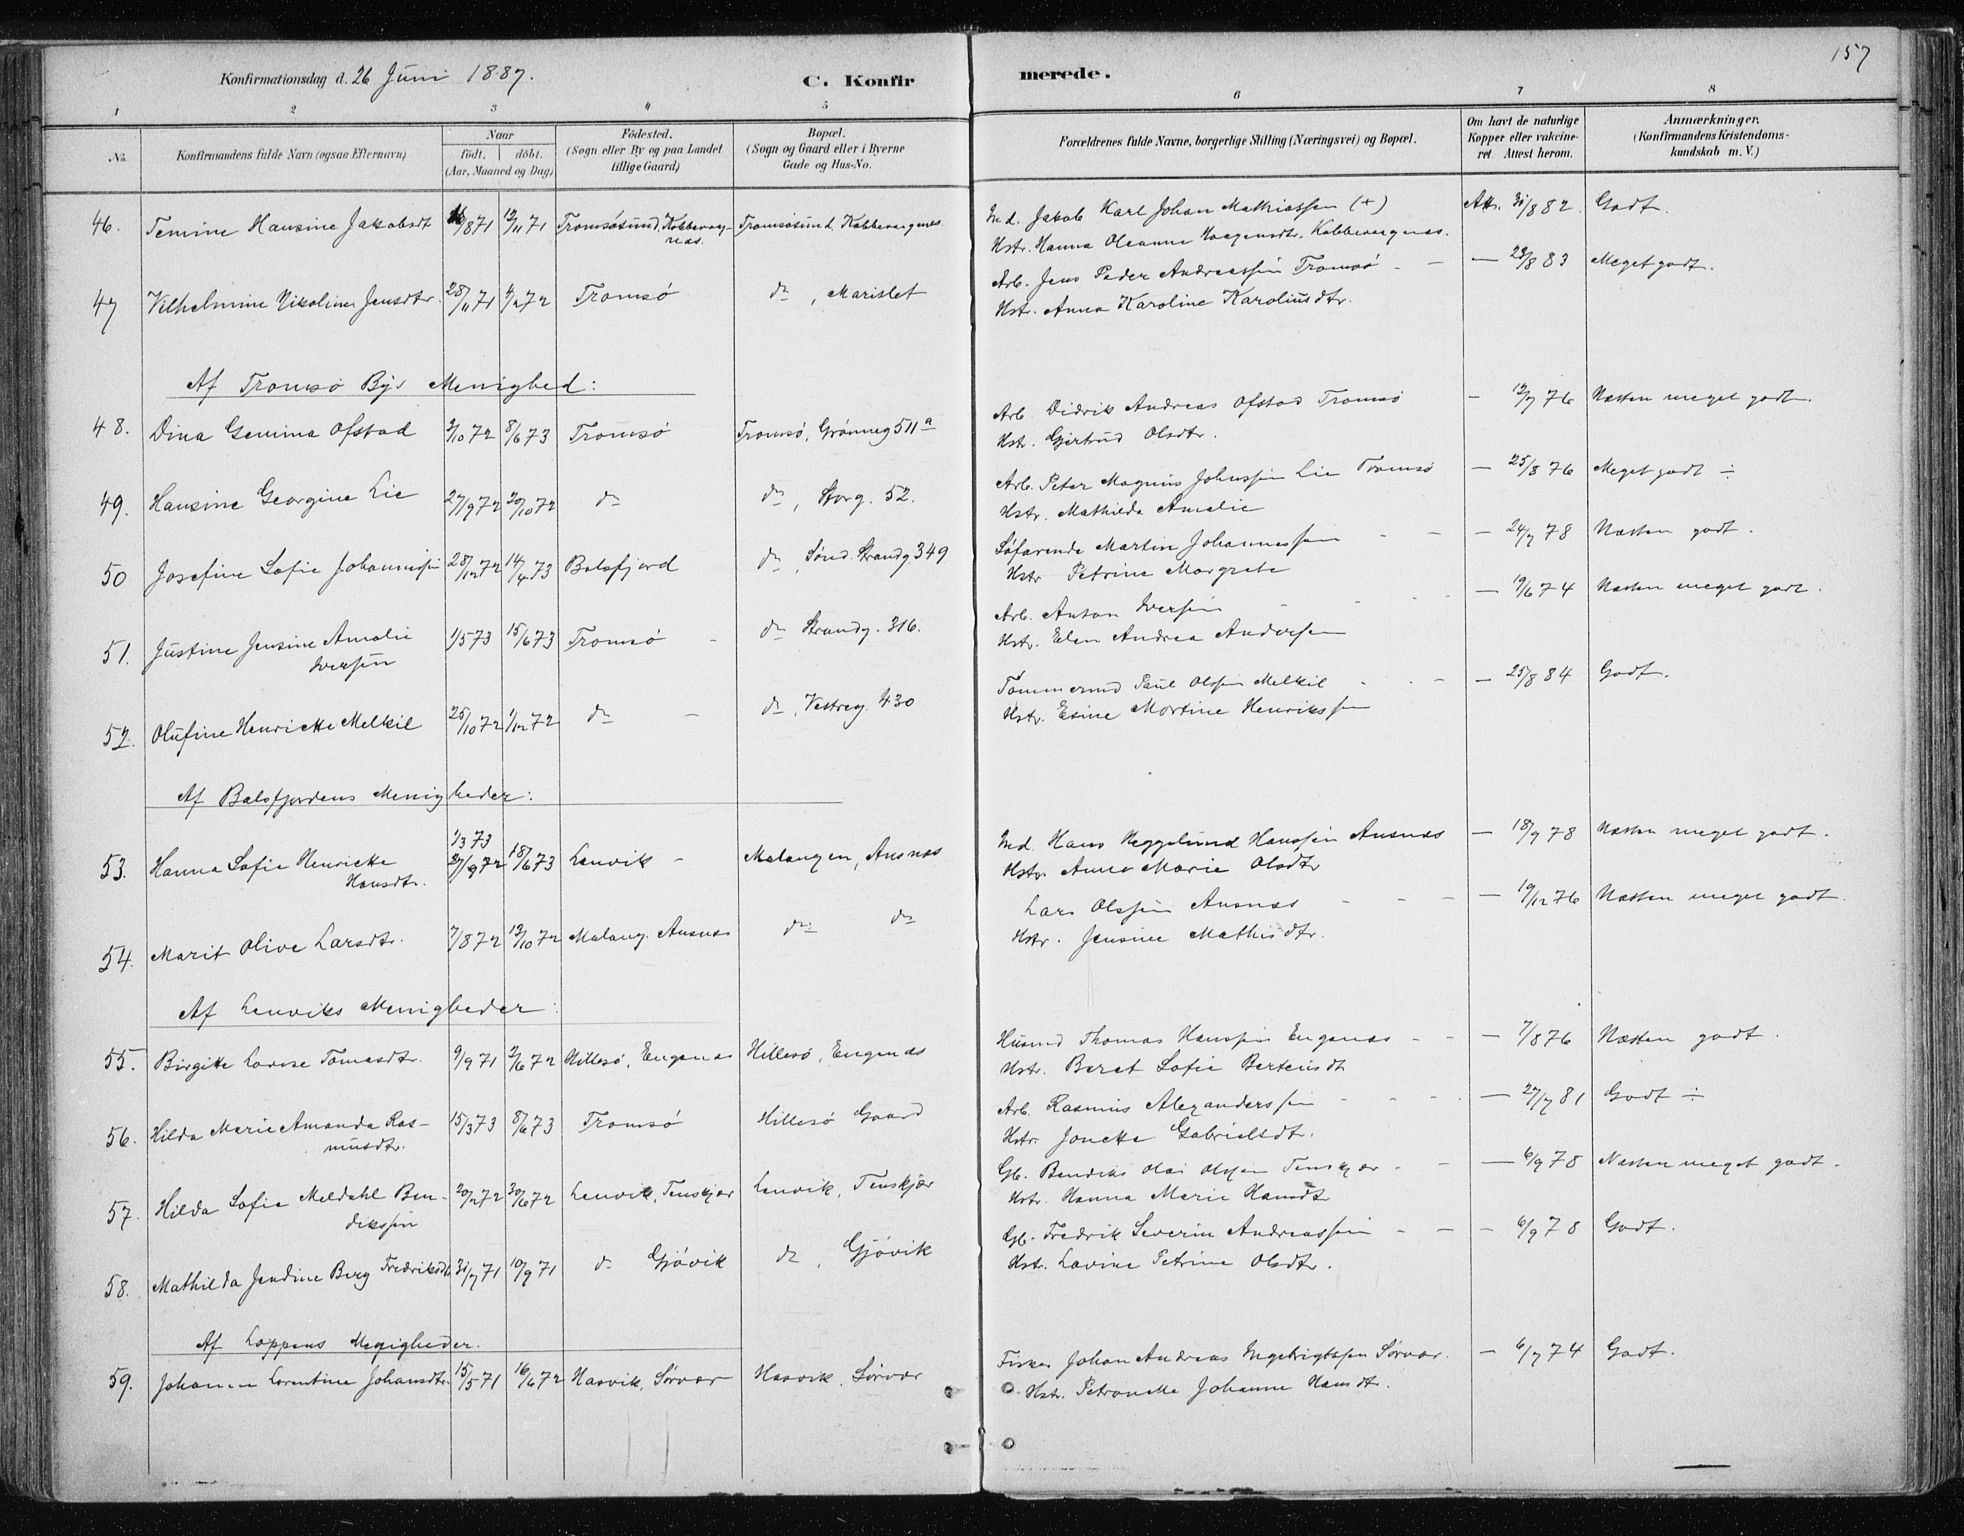 157
Konfirmationsdag d. 26 Juni 1887.
C. Konfirmerede.
1 2 3 4 5 6 7 8
No.
Konfirmandens fulde Navn (ogsaa Efternavn)
Naar
födt. döbt.
(Aar, Maaned og Dag)
Födested.
(Sogn eller By og paa Landet
tillige Gaard)
Bopæl.
(Sogn og Gaard eller i Byerne
Gade og Hus-No.
Forældrenes fulde Navne, borgerlige Stilling (Næringsvei) og Bopæl.
Om havt de naturlige
Kopper eller vakcineret. Attest herom.
Anmærkninger.
(Konfirmandens Kristendomskundskab m. V.)
46. Temine Hansine Jakobsdt /871 12/11 71 Tromsøsund, Kobbevagnæs. Tromsøsund, Kobbevagnes. Ind. Jakob Karl Johan Mathiassen (+) Att. 31/8 82. Godt.
Hstr. Hanna Oleanne Haagensdtr. Kobbevagnæs.
47 Vilhelmine Nikoline Jensdtr. 28/11 71 4/2 72 Tromsø do, Marislet Arb. Jens Peder Andreassen Tromsø - - — 23/8 83 Meget godt.
Hstr. Anna Karoline Karoliusdtr.
Af Tromsø Bys Menighed:
48. Dina Gemina Ofstad 3/10 72 8/6 73 Tromsø Tromsø, Grønneg 511 a Arb. Didrik Andreas Ofstad Tromsø - 12/7 76 Næsten meget godt.
Hstr. Gjertrud Olsdtr.
49. Hansine Georgine Lie 27/9 72 20/10 72 do do, Storg. 52. Arb. Peter Magnus Johnssen Lie Tromsø — 25/8 76 Meget godt ÷
Hstr. Mathilda Amalie
50 Josefine Sofie Johannesen 28/12 72 14/4 73 Balsfjord do, Sønd. Strandg 349 Søfarende Martin Johannessen - - — 24/7 78 Næsten godt.
Hstr Petrine Margrete
51. Justine Jensine Amalie
Iversen 1/5 73 15/6 73 Tromsø - do Strandg. 316. Arb. Anton Iversen — 19/6 74 Næsten meget godt.
Hstr. Elen Andrea Andersen
52. Olufine Henriette Melkil 25/10 72 1/12 72 do - do, Vestreg 430 Tømmermd Paul Olsen Melkil - - — 25/8 84 Godt.
Hstr. Esine Mortine Henrikssen
Af Balsfjordens Menigheder:
53. Hanna Sofie Henriette
Hansdtr. 1/3 73
27/9 72 18/6 73 Lenvik - Malangen, Ansnæs Ind. Hans Heggelund Hanssen Ansnæs — 18/9 78 Næsten meget godt.
Hstr. Anna Marie Olsdtr
54. Marit Olive Larsdtr. 7/8 72 13/10 72 Malang. Ansnæs do do Lars Olssen Ansnæs - - - — 19/12 76 Næsten meget godt.
Hstr. Jensine Mathisdtr.
Af Lenviks Menigheder:
55. Birgitte Lovise Tomasdtr. 9/9 71 2/6 72 Hillesø, Engenæs Hillesø, Engenæs Husmd Thomas Hanssen Engenæs - - — 7/8 76 Næsten godt.
Hstr. Beret Sofie Bertensdt
56. Hilda Marie Amanda Rasmusdtr. 15/3 73 8/6 73 Tromsø Hillesø Gaard Arb. Rasmus Alexanderssen - - - — 27/7 81 Godt ÷
Hstr. Jonette Gabrielsdtr.
57. Hilda Sofie Meldahl Bendikssen 20/2 72 30/6 72 Lenvik, Tenskjær Lenvik, Tenskjær Gb. Bendiks Olai Olssen Tenskjær - - — 6/9 78 Næsten meget godt.
Hstr. Hanna Marie Hansdt
58. Mathilda Jendine Berg Fredriksdtr. 31/7 71 10/9 71 do Gjøvik do, Gjøvik Gb. Fredrik Severin Andreassen - - — 6/9 78 Godt.
Hstr. Lavine Petrine Olsdtr.
Af Loppens Menigheder.
59. Johanne Lorentine Johansdtr. 15/5 71 16/6 72 Hasvik, Sørvær Hasvik, Sørvær Fisker Johan Andreas Ingebrigtssen Sørvær. — 6/7 74 Godt.
Hstr. Petronelle Johanne Hansdt.